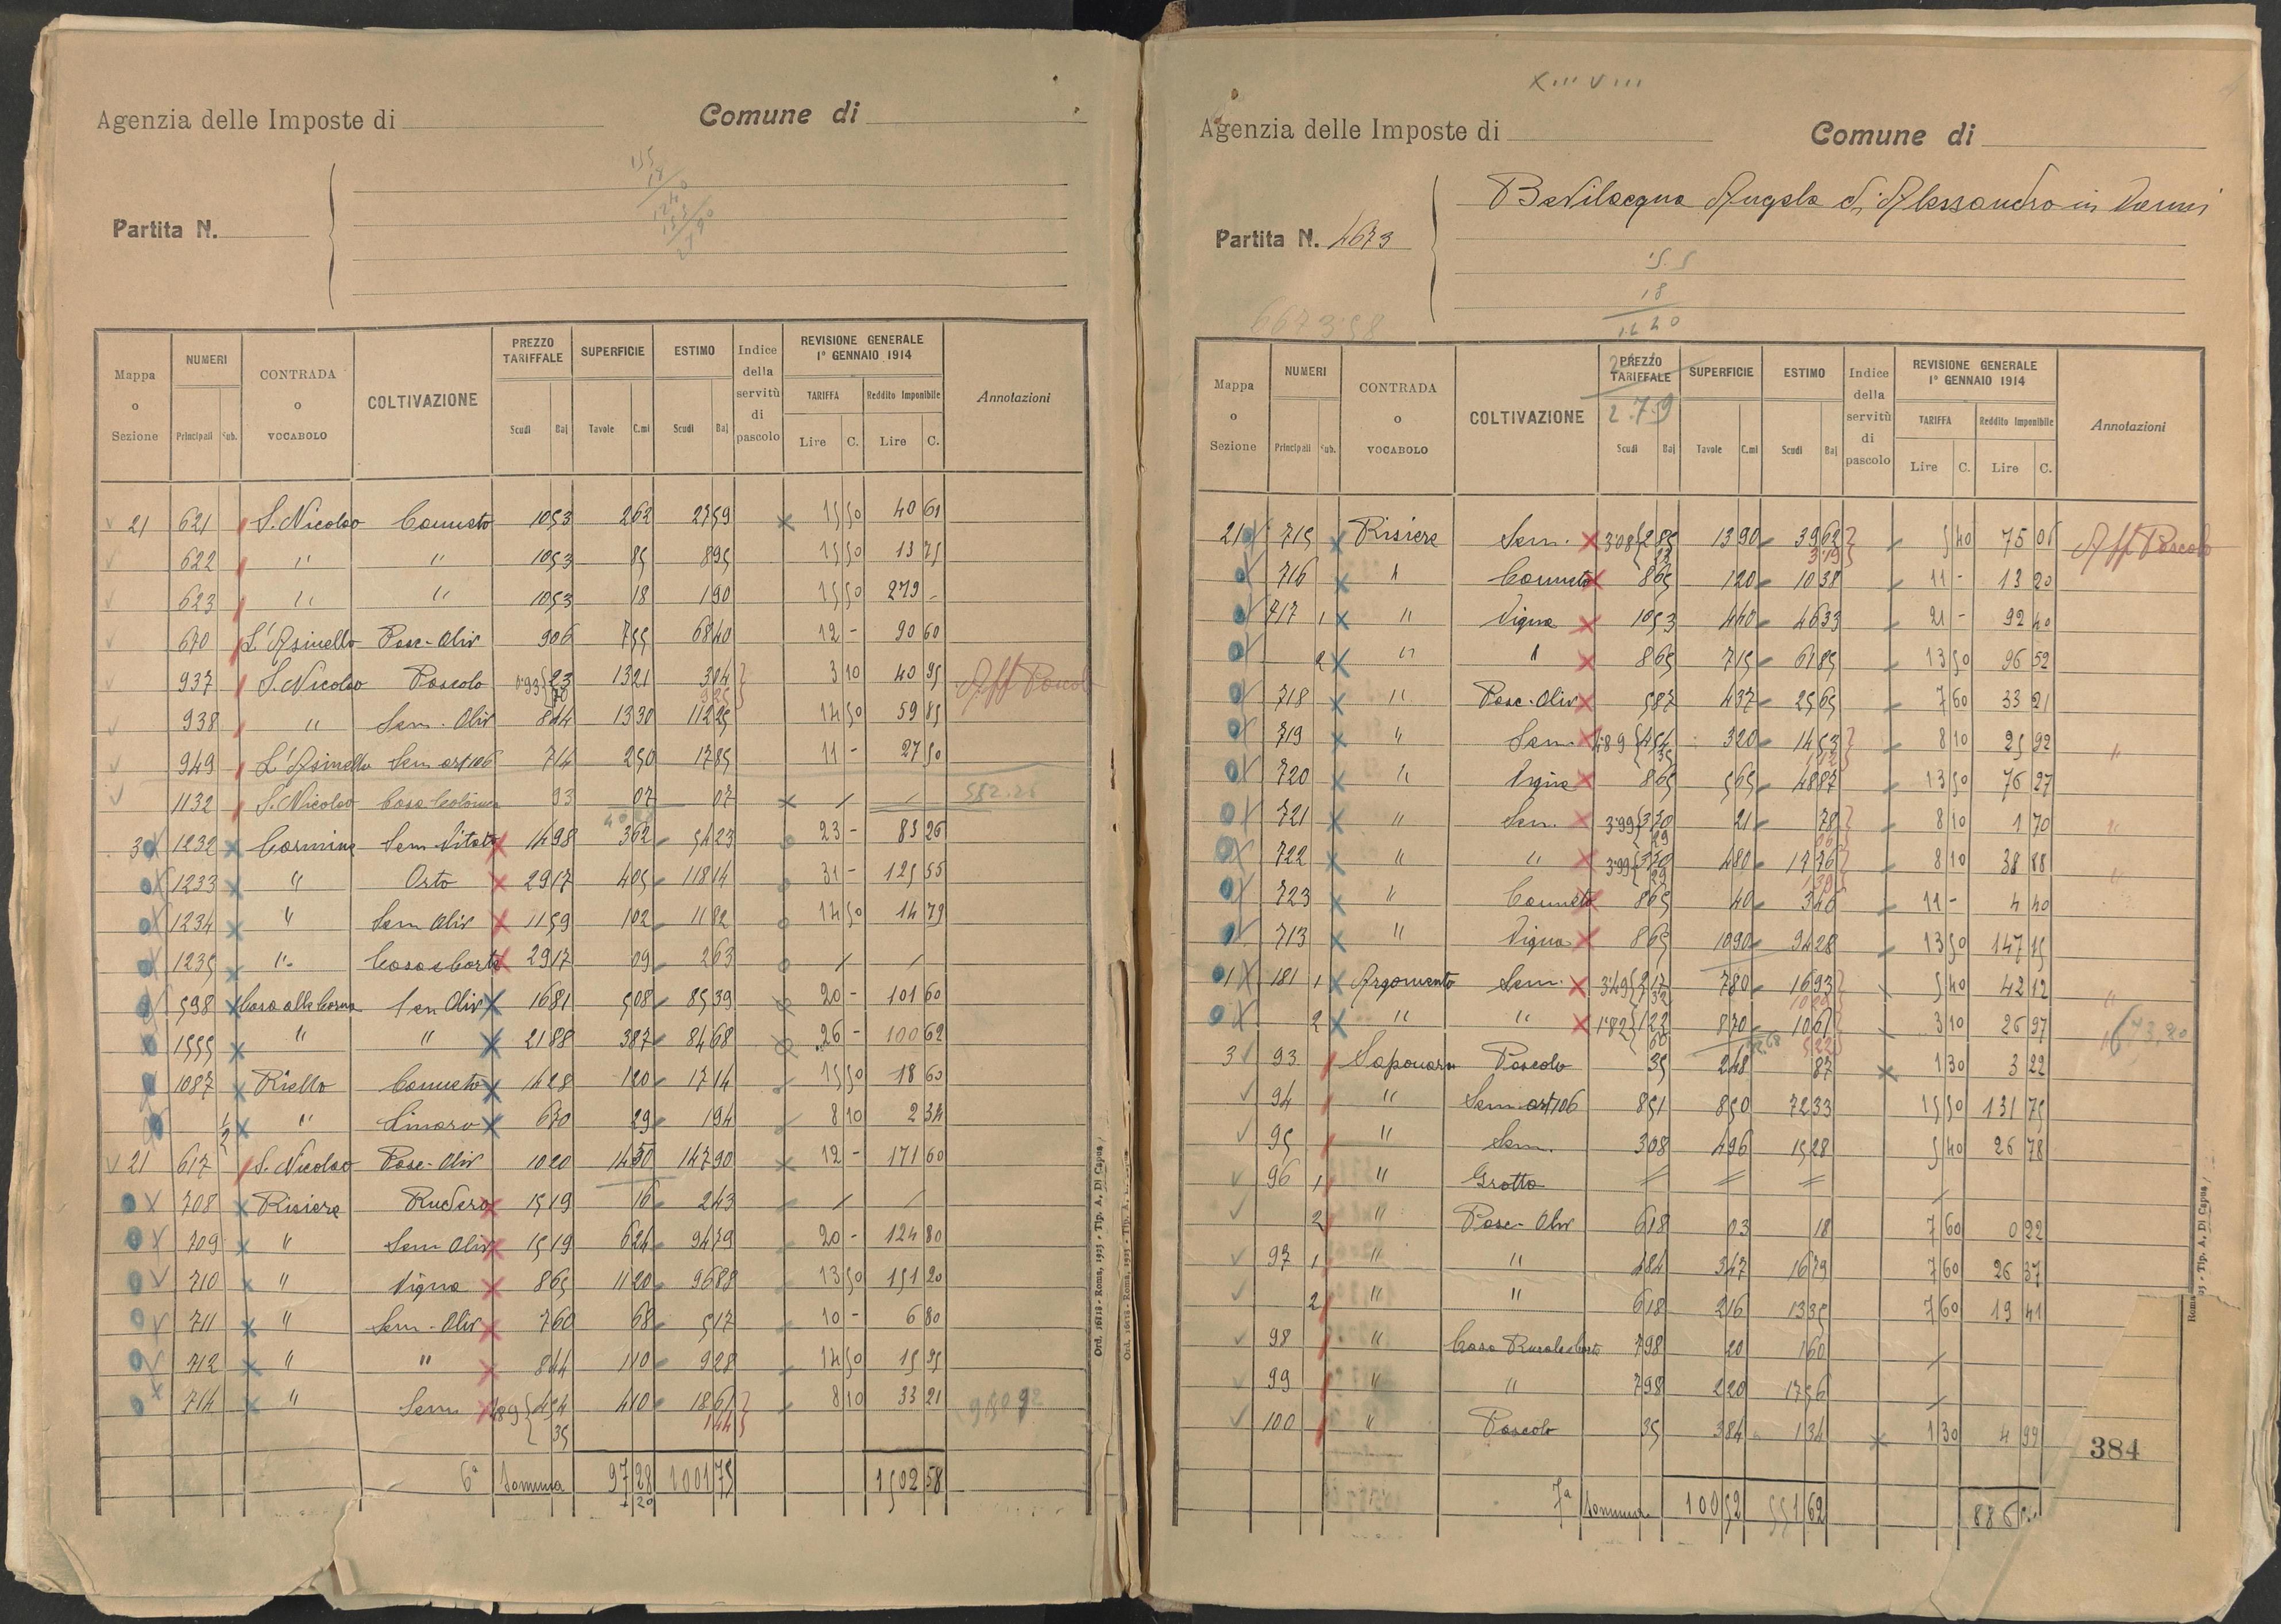 Agenzia delle Imposte di
Comune di
Partita N.
Mappa o Sezione | NUMERI Principali Sub. | CONTRADA o VOCABOLO | COLTIVAZIONE | PREZZO TARIFFALE Scudi Baj | SUPERFICIE Tavole C.mi | ESTIMO Scudi Baj | Indice della servitù di pascolo | REVISIONE GENERALE 1° GENNAIO 1914 TARIFFA Lire C. Reddito Imponibile Lire C. | Annotazioni
21 621 S. Nicolao Canneto 1053 262 2759 15 50 40 61
622 " " 1053 85 895 15 50 13 75
623 " " 1053 18 190 15 50 279 -
670 L'Asinello Pasc-Oliv 906 755 6840 12 - 90 60
937 S. Nicolao Pascolo 0.93 23 70 1321 304 925 3 10 40 95 Aff Pascolo
938 " Sem. Oliv 844 1330 11225 14 50 59 85
949 L'Asinello Sem art 106 714 250 1785 11 - 27 50
1132 S. Nicolao Casa Colonica 93 07 07 / / 582.26
30 1232 Carmine Sem Vitato 1498 362 5423 23 - 83 26
1233 " Orto 2917 405 11814 31 - 125 55
1234 " Sem Oliv 1159 102 1182 14 50 14 79
1235 " Casa e Corte 2917 09 263 / /
598 Casa alle Corna Sem Oliv 1681 508 8539 20 - 101 60
1555 " " 2188 387 8468 26 - 100 62
1087 Riello Canneto 1428 120 1714 15 50 18 60
" 670 29 194 8 10 2 34
21 617 S. Nicolao Pasc-Oliv 1020 1430 14790 12 - 171 60
708 Risiere Rudero 1519 16 243 / /
709 " Sem Oliv 1519 624 9479 20 - 124 80
710 " Vigna 865 1120 9688 13 50 151 20
711 " Sem-Oliv 760 68 517 10 - 6 80
712 " " 844 110 928 14 50 15 95
714 " Sem 489 454 35 410 1861 144 8 10 33 21
6ª Somma 97 28 1001 75 1502 58
Ord. 16818 - Roma, 1923 - Tip. A. Di Capua
Agenzia delle Imposte di
Comune di
Partita N. 4673
Bevilacqua Angela di Alessandro in Vanni
Mappa o Sezione | NUMERI Principali Sub. | CONTRADA o VOCABOLO | COLTIVAZIONE | PREZZO TARIFFALE Scudi Baj | SUPERFICIE Tavole C.mi | ESTIMO Scudi Baj | Indice della servitù di pascolo | REVISIONE GENERALE 1° GENNAIO 1914 TARIFFA Lire C. Reddito Imponibile Lire C. | Annotazioni
21 715 Risiere Sem. 3.08 285 23 1390 3962 319 5 40 75 06 Aff Pascolo
716 " Canneto 865 120 1038 11 - 13 20
717 1 " Vigna 1053 440 4633 21 - 92 40
2 " " 865 715 6185 13 50 96 52
718 " Pasc-Oliv 587 437 2565 7 60 33 21
719 " Sem. 489 454 35 320 1453 112 8 10 25 92 "
720 " Vigna 865 565 4887 13 50 76 27
721 " Sem. 3.99 370 29 21 78 06 8 10 1 70 "
722 " " 3.99 370 29 480 1776 139 8 10 38 88 "
723 " Canneto 865 40 346 11 - 4 40
713 " Vigna 865 1090 9428 13 50 147 15
181 1 Argomento Sem. 3.49 217 132 780 1693 1029 5 40 42 12 "
2 " " 1.82 122 60 870 1061 522 3 10 26 97 "
3 93 Saponara Pascolo 35 248 87 1 30 3 22
94 " Sem art 106 851 850 7233 15 50 131 75
95 " Sem. 308 496 1528 5 40 26 78
96 1 " Grotta = = = /
2 " Pasc-Oliv 618 03 18 7 60 0 22
97 1 " " 484 347 1679 7 60 26 37
2 " " 618 216 1335 7 60 19 41
98 " Casa Rurale e Corte 798 20 160 /
99 " " 798 220 1756 /
100 " Pascolo 35 384 134 1 30 4 99
384
7ª Somma 100 52 551 62 886